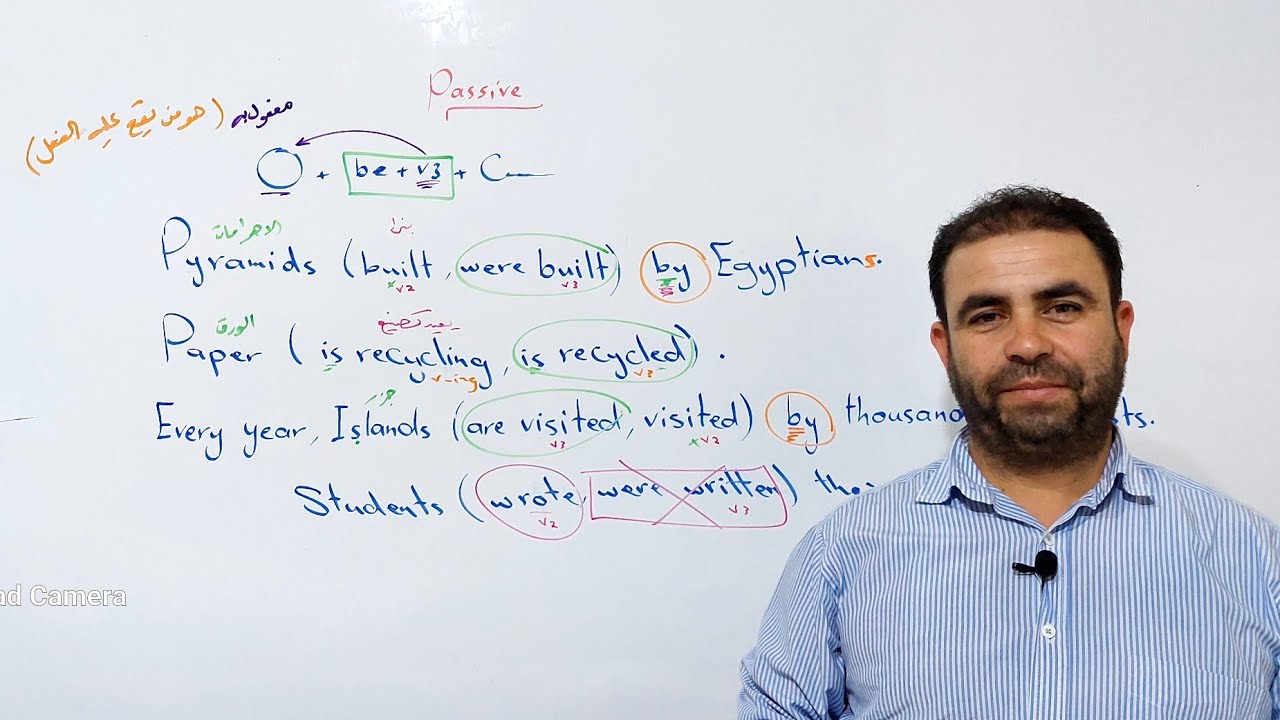 Passive
مفعول به (هو من يقع عليه الفعل)
O + be + v3 + C
الاهرامات بنا
Pyramids (built, were built) by Egyptians.
v2 v3
الورق يعيد تصنيع
Paper ( is recycling, is recycled) .
v-ing v3
جزر
Every year, Islands (are visited, visited) by
v3 v2
Students (wrote, were written)
v2 v3
ad Camera